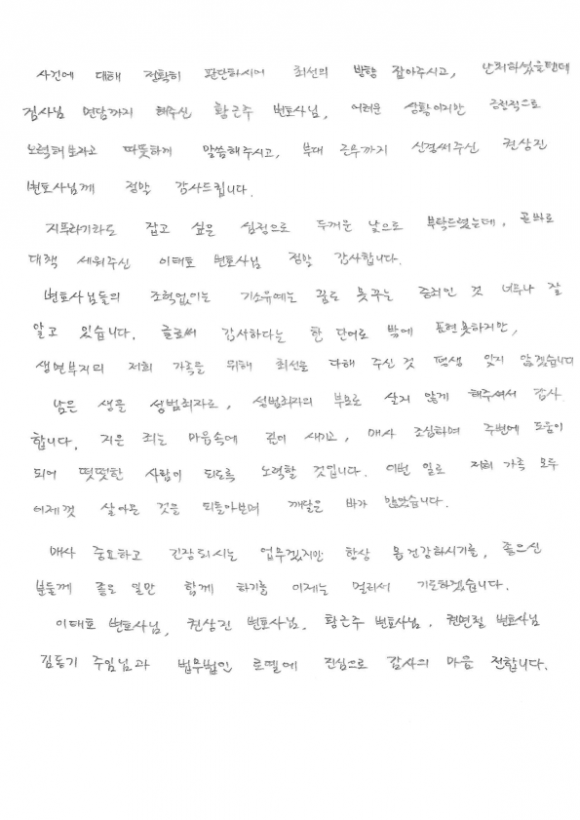 사건에 대해 정확히 판단하시어 최선의 방향 잡아주시고, 난처하셨을텐데
검사님 면담까지 해주신 황근주 변호사님, 어려운 상황이지만 긍정적으로
노력해보자고 따뜻하게 말씀해주시고, 부대 근무까지 신경써주신 권상진
변호사님께 정말 감사드립니다.
지푸라기라도 잡고 싶은 심정으로 두꺼운 낯으로 부탁드렸는데, 곧바로
대책 세워주신 이태호 변호사님 정말 감사합니다.
변호사님들의 조력없이는 기소유예는 꿈도 못꾸는 중죄인 것 너무나 잘
알고 있습니다. 글로써 감사하다는 한 단어로 밖에 표현못하지만,
생면부지의 저희 가족을 위해 최선을 다해 주신 것 평생 잊지 않겠습니다
남은 생을 성범죄자로, 성범죄자의 부모로 살지 않게 해주셔서 감사
합니다. 지은 죄는 마음속에 깊이 새기고, 매사 조심하며 주변에 도움이
되어 떳떳한 사람이 되도록 노력할 것입니다. 이번 일로 저희 가족 모두
이제껏 살아온 것을 되돌아보며 깨달은 바가 많았습니다.
매사 중요하고 긴장되시는 업무겠지만 항상 몸 건강하시기를, 좋으신
분들께 좋은 일만 함께 하기를 이제는 멀리서 기도하겠습니다.
이태호 변호사님, 권상진 변호사님. 황근주 변호사님. 변호사님
김동기 주임님과 법무법인 로펠에 진심으로 감사의 마음 전합니다.